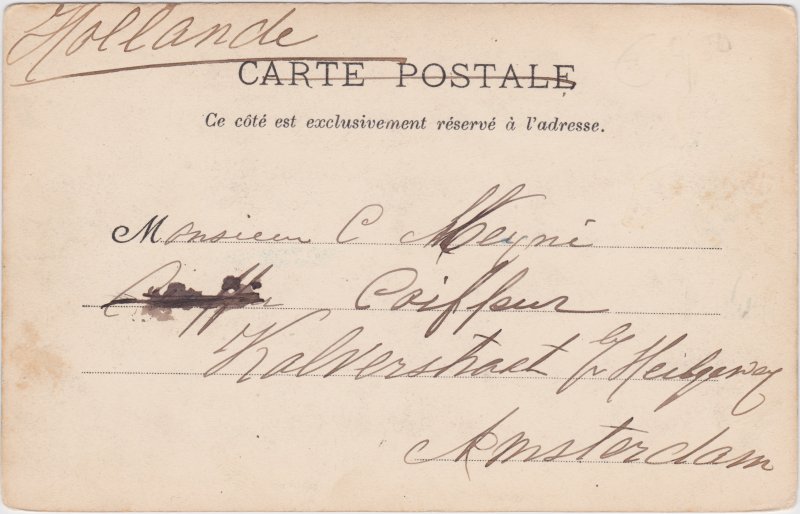 Hollande
CARTE POSTALE
Ce côté est exclusivement réservé à l'adresse.
Monsieur C Meyné
Coiffeur
Kalverstraat Heiligeweg
Amsterdam